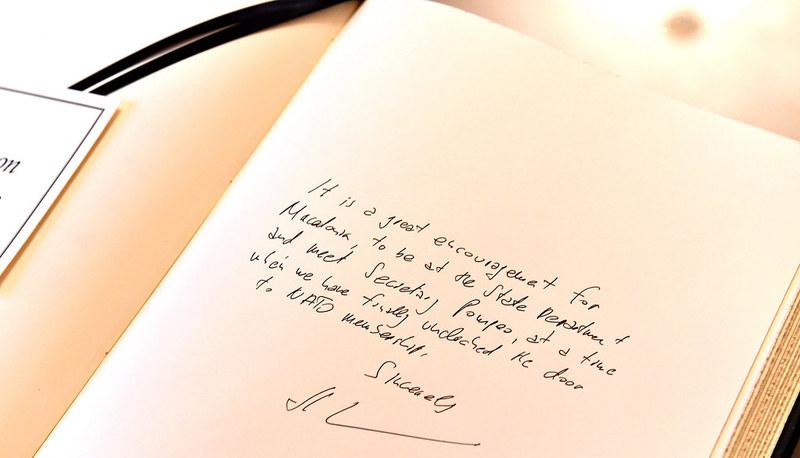 on
It is a great encouragement for
Macedonia, to be at the State Department
and meet Secretary Pompeo, at a time
when we have finally unlocked the door
to NATO membership.
Sincerely